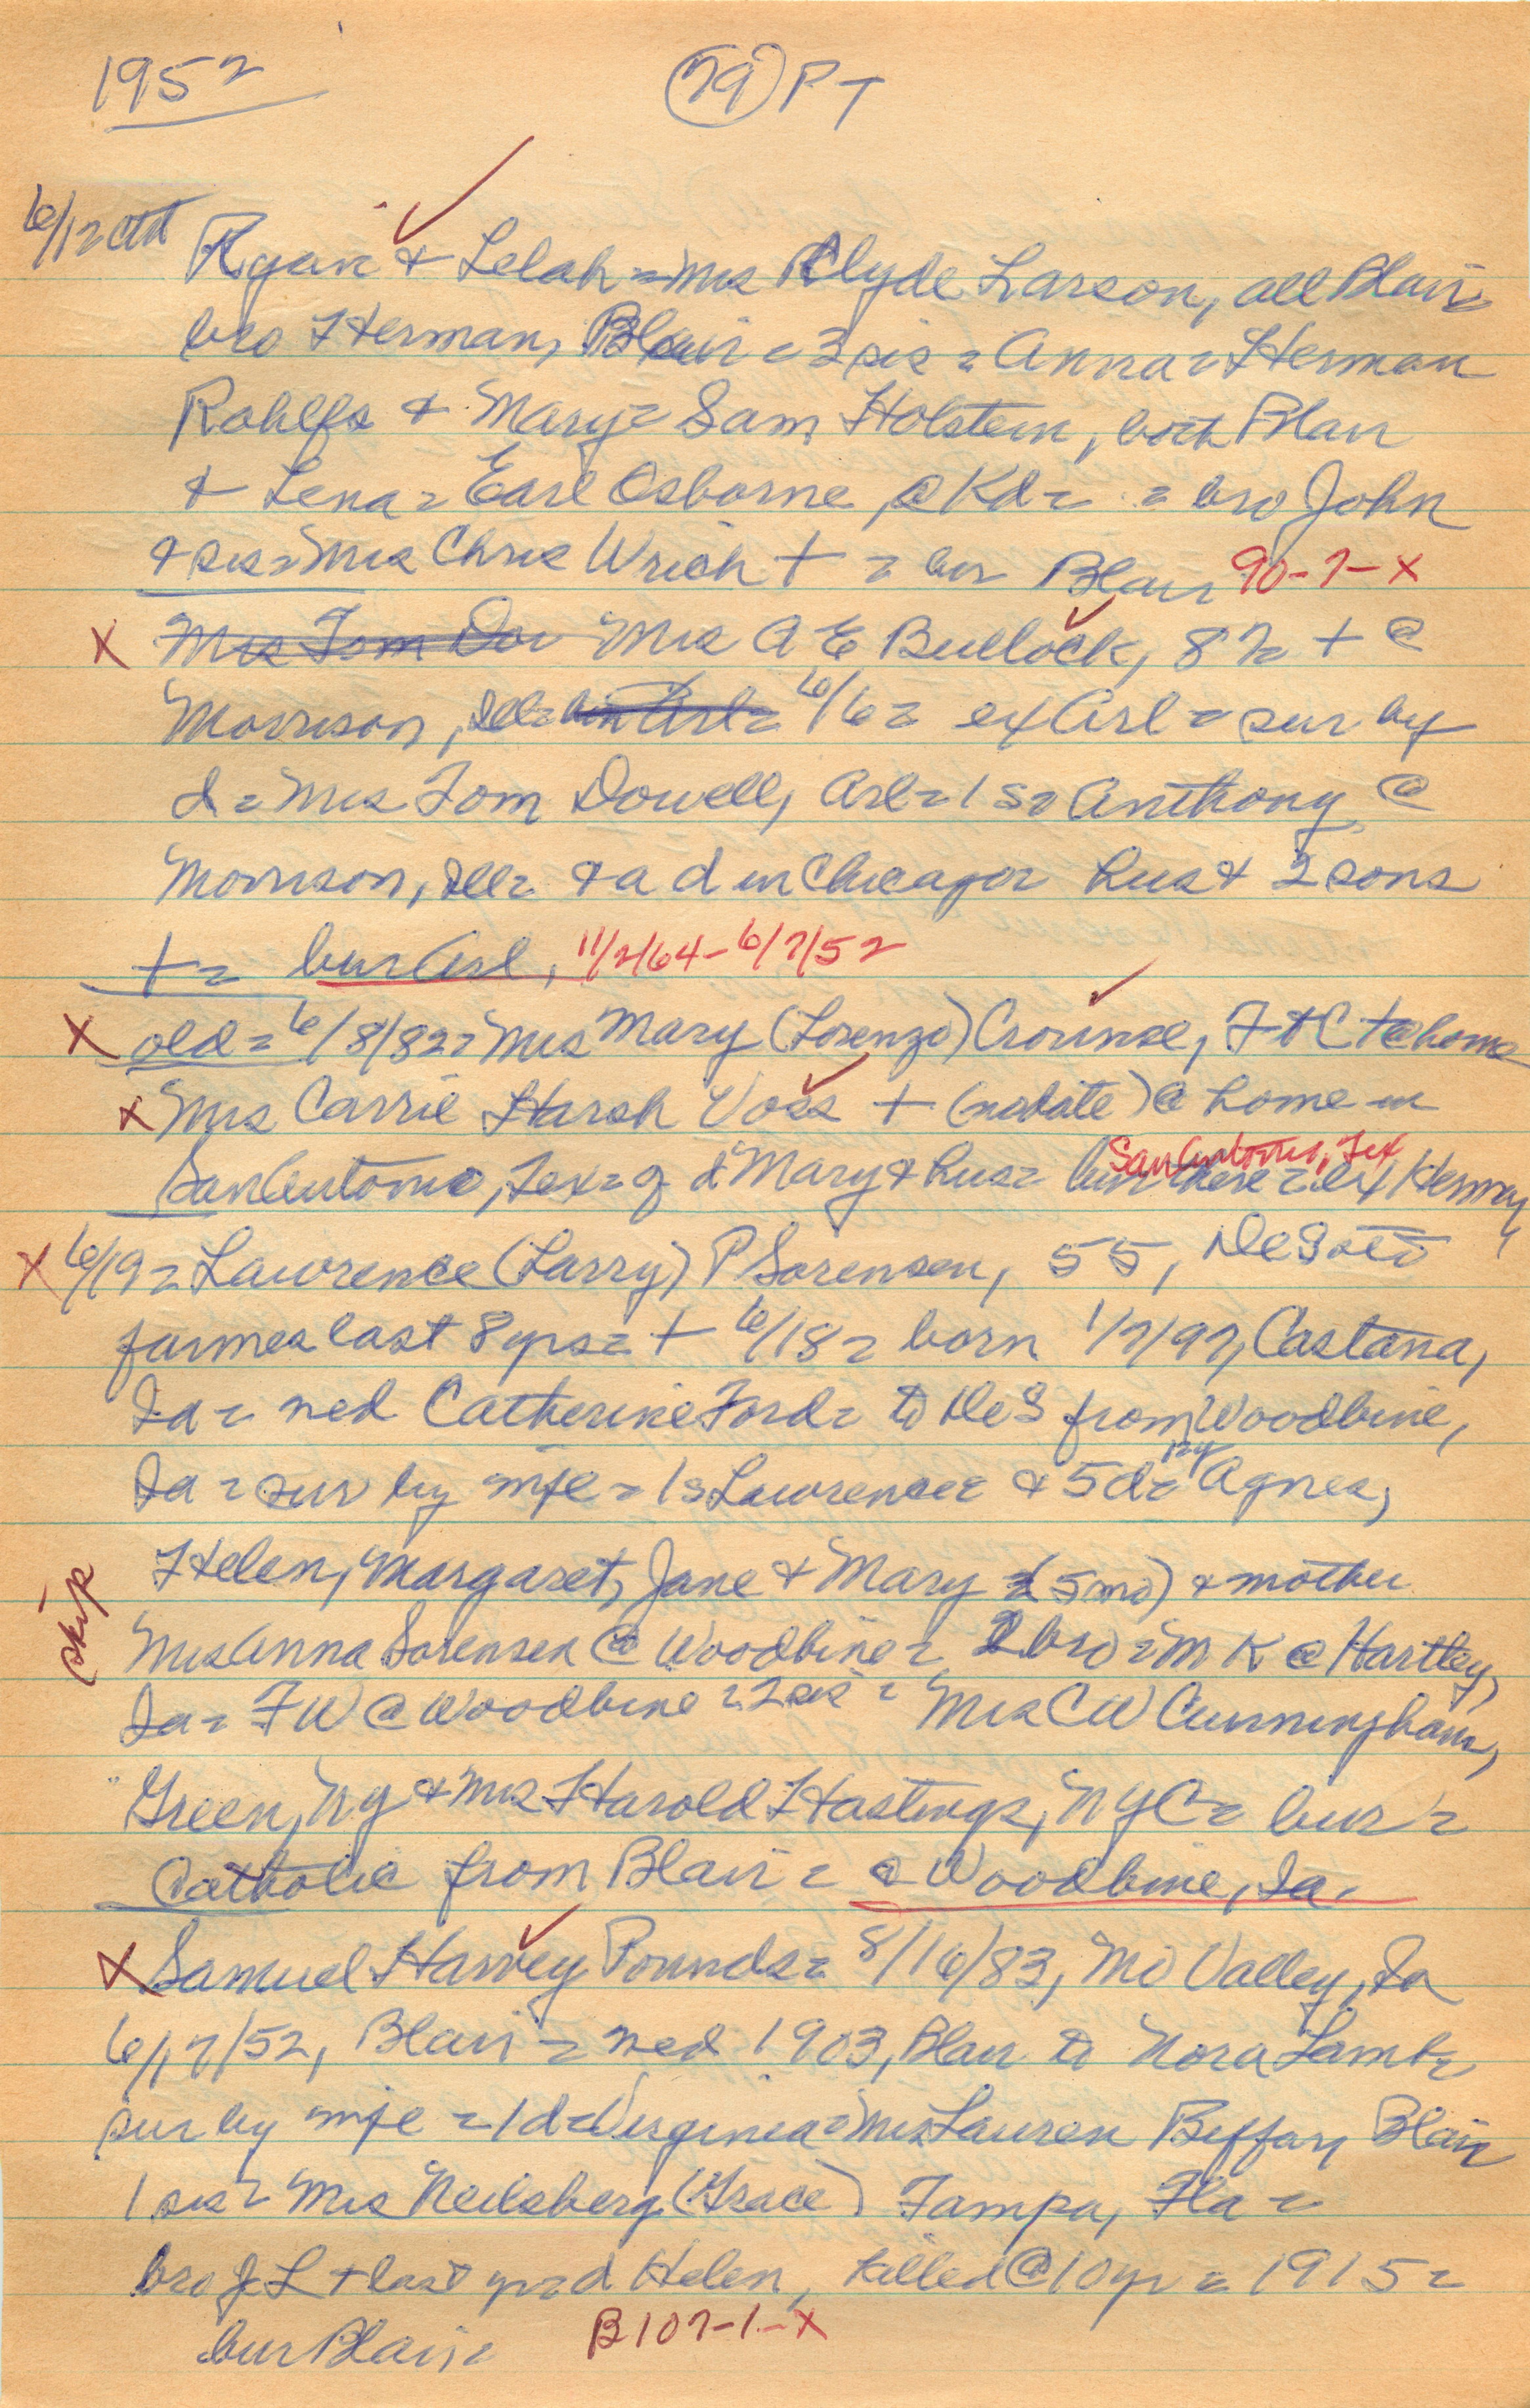 1952
79 PT
6/12 ctd Ryan & Lelah = Mrs Clyde Larson, all Blair
bro Herman, Blair = 3 sis = Anna = Herman
Rohlfs & Mary = Sam Holstein, both Blair
& Lena = Earl Osborne, @ Kd = = bro John
& sis = Mrs Chris Wrich + = bur Blair 90-7-X
X Mrs Tom Do Mrs A E Bullock, 87 = + @
Morrison, Ill = bur Arl = 6/6 = ex Arl = sur by
d = Mrs Tom Dowell, Arl = 1 s = Anthony @
Morrison, Ill = & a d in Chicago = hus & 2 sons
+ = bur Arl, 11/2/64 - 6/7/52
X old = 6/8/82 = Mrs Mary (Lorenzo) Crounse, Ft C + @ home
X Mrs Carrie Harsh Voss + (no date) @ home in
San Antonio, Tex = g d Mary & hus = bur there = ex Herman
San Antonio, Tex
X 6/19 = Lawrence (Larry) P Sorensen, 55, DeSoto
farmer last 8 yrs = + 6/18 = born 1/7/97, Castana,
Ia = wed Catherine Ford = to De S from Woodbine,
Ia = sur by wife = 1 s Lawrence = & 5 d = Agnes,
Helen, Margaret, Jane & Mary (5 mo) & mother
skip
Mrs Anna Sorensen @ Woodbine = 2 bro = M K @ Hartley,
Ia = F W @ Woodbine = 2 sis = Mrs C W Cunningham,
Green, NY & Mrs Harold Hastings, NYC = bur =
Catholic from Blair = @ Woodbine, Ia.
X Samuel Harvey Pounds = 8/16/83, Mo Valley, Ia
6/17/52, Blair = wed 1903, Blair to Nora Lamb =
sur by wife = 1 d = Virginia = Mrs Lauren Beffar, Blair
1 sis = Mrs Neilsberg (Grace) Tampa, Fla =
bro J L + last yr = d Helen, killed @ 10 yr = 1915 =
bur Blair = B107-1-X